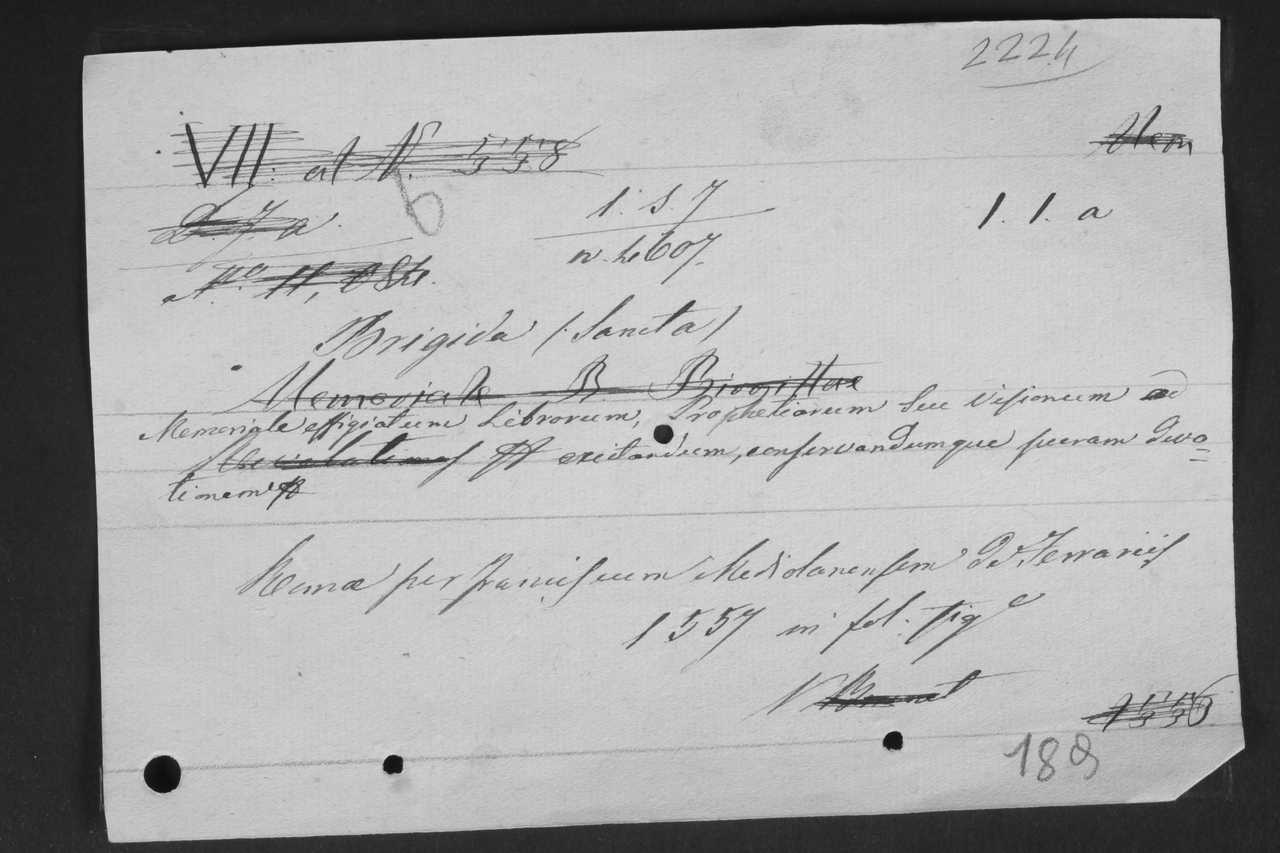 2224
VII. al N. 558
6
L. 7. a.
1. S. 7
1. 1. a
n. 4607.
Brigida (Sancta)
Memoriale B Birgittae
Memoriale effigiatum Librorum, Prophetiarum seu Visionum ad
excitandum, conservandumque piam devo=
tionem
Romae per Franciscum Mediolanensem de Ferrariis
1557 in fol. fig
1556
189